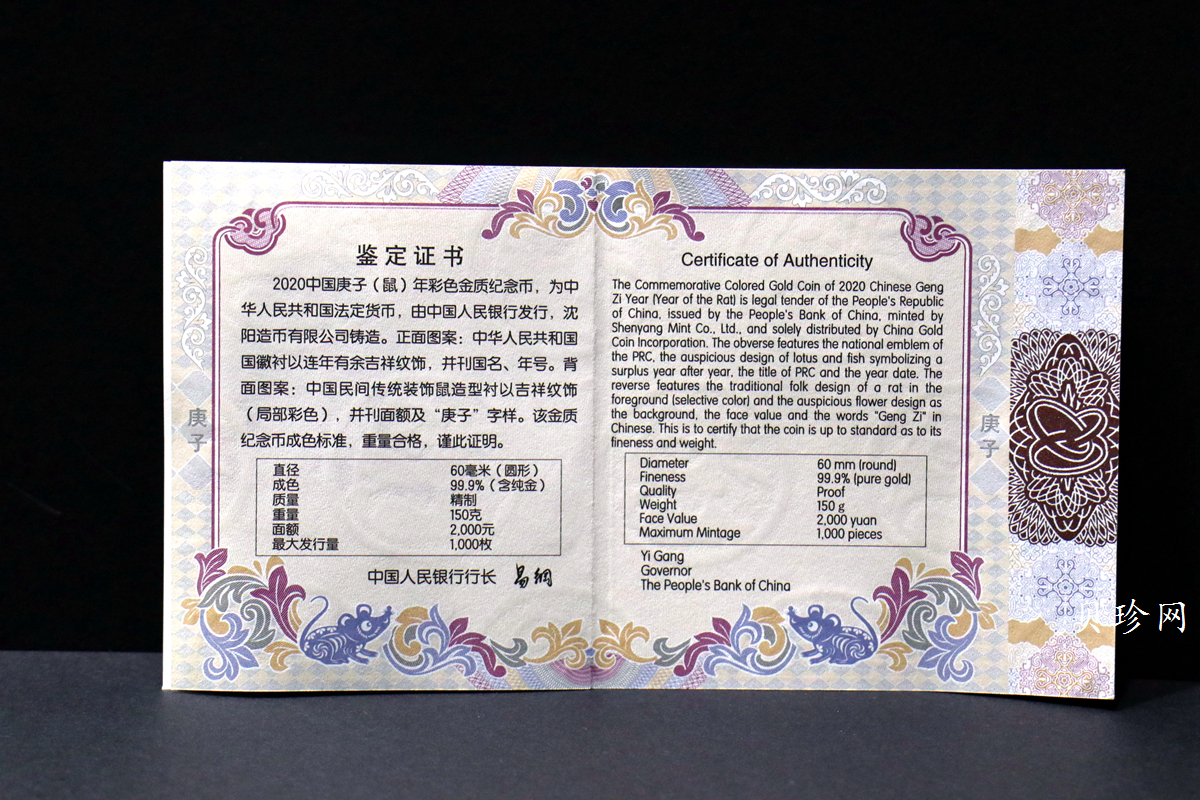 鉴定证书
2020中国庚子（鼠）年彩色金质纪念币，为中
华人民共和国法定货币，由中国人民银行发行，沈
阳造币有限公司铸造。正面图案：中华人民共和国
国徽衬以连年有余吉祥纹饰，并刊国名、年号。背
面图案：中国民间传统装饰鼠造型衬以吉祥纹饰
（局部彩色），并刊面额及“庚子”字样。该金质
纪念币成色标准，重量合格，谨此证明。
直径 60毫米（圆形）
成色 99.9%（含纯金）
质量 精制
重量 150克
面额 2,000元
最大发行量 1,000枚
中国人民银行行长 易纲
庚子
Certificate of Authenticity
The Commemorative Colored Gold Coin of 2020 Chinese Geng
Zi Year (Year of the Rat) is legal tender of the People's Republic
of China, issued by the People's Bank of China, minted by
Shenyang Mint Co., Ltd., and solely distributed by China Gold
Coin Incorporation. The obverse features the national emblem of
the PRC, the auspicious design of lotus and fish symbolizing a
surplus year after year, the title of PRC and the year date. The
reverse features the traditional folk design of a rat in the
foreground (selective color) and the auspicious flower design as
the background, the face value and the words "Geng Zi" in
Chinese. This is to certify that the coin is up to standard as to its
fineness and weight.
Diameter 60 mm (round)
Fineness 99.9% (pure gold)
Quality Proof
Weight 150 g
Face Value 2,000 yuan
Maximum Mintage 1,000 pieces
Yi Gang
Governor
The People's Bank of China
庚子
珍网